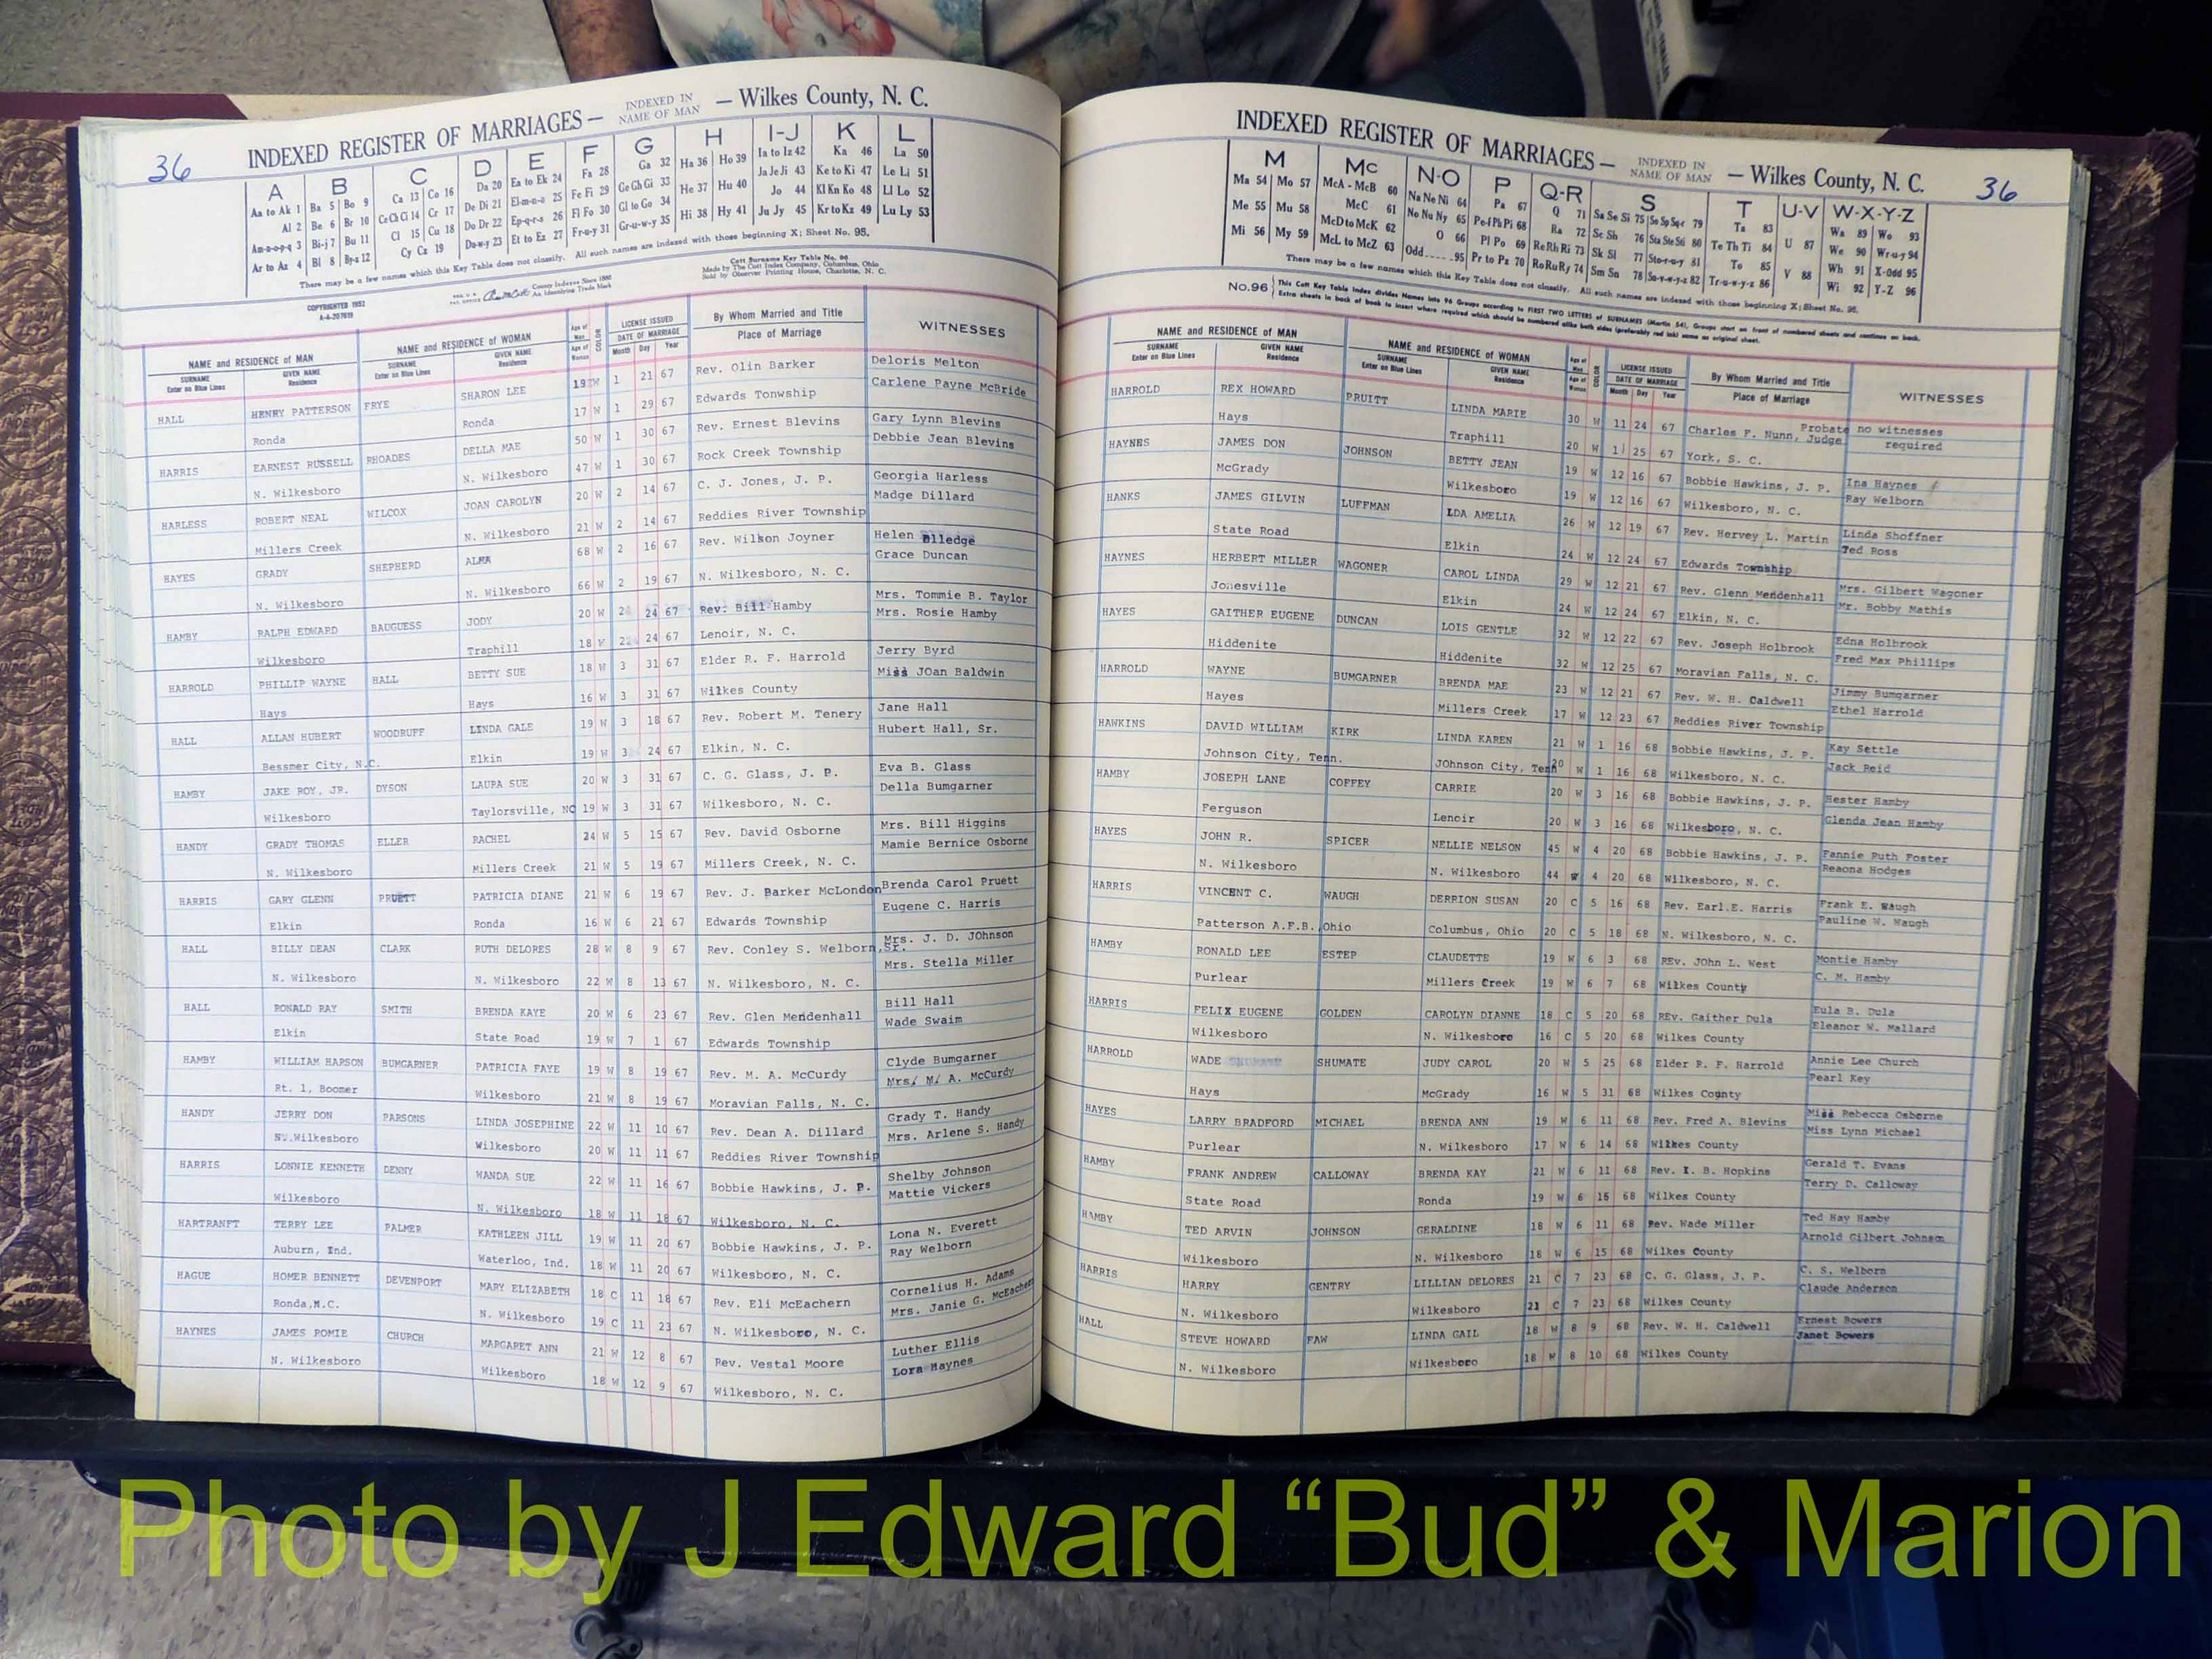 36
INDEXED REGISTER OF MARRIAGES — INDEXED IN NAME OF MAN — Wilkes County, N. C.
A B C D E F G H I-J K L
Aa to Ak 1 Ba 5 Bo 9 Ca 13 Co 16 Da 20 Ea to Ek 24 Fa 28 Ga 32 Ha 36 Ho 39 Ia to Iz 42 Ka 46 La 50
Al 2 Be 6 Br 10 Ce Ch Ci 14 Cr 17 De Di 21 El-m-n-o 25 Fe Fi 29 Ge Gh Gi 33 He 37 Hu 40 Ja Je Ji 43 Ke to Ki 47 Le Li 51
Am-n-o-p-q 3 Bi-j 7 Bu 11 Cl 15 Cu 18 Do Dr 22 Ep-q-r-s 26 Fl Fo 30 Gl to Go 34 Hi 38 Hy 41 Jo 44 Kl Kn Ko 48 Ll Lo 52
Ar to Az 4 Bl 8 By-z 12 Cy Cz 19 Du-w-y 23 Et to Ez 27 Fr-u-y 31 Gr-u-w-y 35 Ju Jy 45 Kr to Kz 49 Lu Ly 53
There may be a few names which this Key Table does not classify. All such names are indexed with those beginning X; Sheet No. 95.
COPYRIGHTED 1952
A-4-207619
County Indexes Since 1888
An Identifying Trade Mark
Cott Surname Key Table No. 96
Made by The Cott Index Company, Columbus, Ohio
Sold by Observer Printing House, Charlotte, N. C.
NAME and RESIDENCE of MAN NAME and RESIDENCE of WOMAN Age of Man COLOR LICENSE ISSUED By Whom Married and Title WITNESSES
SURNAME GIVEN NAME SURNAME GIVEN NAME Age of Woman DATE OF MARRIAGE Place of Marriage
Enter on Blue Lines Residence Enter on Blue Lines Residence Month Day Year
HALL HENRY PATTERSON FRYE SHARON LEE 19 W 1 21 67 Rev. Olin Barker Deloris Melton
Ronda Ronda 17 W 1 29 67 Edwards Tonwship Carlene Payne McBride
HARRIS EARNEST RUSSELL RHOADES DELLA MAE 50 W 1 30 67 Rev. Ernest Blevins Gary Lynn Blevins
N. Wilkesboro N. Wilkesboro 47 W 1 30 67 Rock Creek Township Debbie Jean Blevins
HARLESS ROBERT NEAL WILCOX JOAN CAROLYN 20 W 2 14 67 C. J. Jones, J. P. Georgia Harless
Millers Creek N. Wilkesboro 21 W 2 14 67 Reddies River Township Madge Dillard
HAYES GRADY SHEPHERD ALMA 68 W 2 16 67 Rev. Wilson Joyner Helen Elledge
N. Wilkesboro N. Wilkesboro 66 W 2 19 67 N. Wilkesboro, N. C. Grace Duncan
HAMBY RALPH EDWARD BAUGUESS JODY 20 W 2 24 67 Rev. Bill Hamby Mrs. Tommie B. Taylor
Wilkesboro Traphill 18 W 2 24 67 Lenoir, N. C. Mrs. Rosie Hamby
HARROLD PHILLIP WAYNE HALL BETTY SUE 18 W 3 31 67 Elder R. F. Harrold Jerry Byrd
Hays Hays 16 W 3 31 67 Wilkes County Miss JOan Baldwin
HALL ALLAN HUBERT WOODRUFF LINDA GALE 19 W 3 18 67 Rev. Robert M. Tenery Jane Hall
Bessmer City, N.C. Elkin 19 W 3 24 67 Elkin, N. C. Hubert Hall, Sr.
HAMBY JAKE ROY, JR. DYSON LAURA SUE 20 W 3 31 67 C. G. Glass, J. P. Eva B. Glass
Wilkesboro Taylorsville, NC 19 W 3 31 67 Wilkesboro, N. C. Della Bumgarner
HANDY GRADY THOMAS ELLER RACHEL 24 W 5 15 67 Rev. David Osborne Mrs. Bill Higgins
N. Wilkesboro Millers Creek 21 W 5 19 67 Millers Creek, N. C. Mamie Bernice Osborne
HARRIS GARY GLENN PRUETT PATRICIA DIANE 21 W 6 19 67 Rev. J. Parker McLondon Brenda Carol Pruett
Elkin Ronda 16 W 6 21 67 Edwards Township Eugene C. Harris
HALL BILLY DEAN CLARK RUTH DELORES 28 W 8 9 67 Rev. Conley S. Welborn, Sr. Mrs. J. D. JOhnson
N. Wilkesboro N. Wilkesboro 22 W 8 13 67 N. Wilkesboro, N. C. Mrs. Stella Miller
HALL RONALD RAY SMITH BRENDA KAYE 20 W 6 23 67 Rev. Glen Mendenhall Bill Hall
Elkin State Road 19 W 7 1 67 Edwards Township Wade Swaim
HAMBY WILLIAM HARSON BUMGARNER PATRICIA FAYE 19 W 8 19 67 Rev. M. A. McCurdy Clyde Bumgarner
Rt. 1, Boomer Wilkesboro 21 W 8 19 67 Moravian Falls, N. C. Mrs. M. A. McCurdy
HANDY JERRY DON PARSONS LINDA JOSEPHINE 22 W 11 10 67 Rev. Dean A. Dillard Grady T. Handy
N. Wilkesboro Wilkesboro 20 W 11 11 67 Reddies River Township Mrs. Arlene S. Handy
HARRIS LONNIE KENNETH DENNY WANDA SUE 22 W 11 16 67 Bobbie Hawkins, J. P. Shelby Johnson
Wilkesboro N. Wilkesboro 18 W 11 18 67 Wilkesboro, N. C. Mattie Vickers
HARTRANFT TERRY LEE PALMER KATHLEEN JILL 19 W 11 20 67 Bobbie Hawkins, J. P. Lona N. Everett
Auburn, Ind. Waterloo, Ind. 18 W 11 20 67 Wilkesboro, N. C. Ray Welborn
HAGUE HOMER BENNETT DEVENPORT MARY ELIZABETH 18 C 11 18 67 Rev. Eli McEachern Cornelius H. Adams
Ronda, N.C. N. Wilkesboro 19 C 11 23 67 N. Wilkesboro, N. C. Mrs. Janie G. McEachern
HAYNES JAMES ROMIE CHURCH MARGARET ANN 21 W 12 8 67 Rev. Vestal Moore Luther Ellis
N. Wilkesboro Wilkesboro 18 W 12 9 67 Wilkesboro, N. C. Lora Haynes
INDEXED REGISTER OF MARRIAGES — INDEXED IN NAME OF MAN — Wilkes County, N. C.
36
M Mc N-O P Q-R S T U-V W-X-Y-Z
Ma 54 Mo 57 McA - McB 60 Na Ne Ni 64 Pa 67 Q 71 Sa Se Si 75 So Sp Sq-r 79 Ta 83 U 87 Wa 89 Wo 93
Me 55 Mu 58 McC 61 No Nu Ny 65 Pe-f Ph Pi 68 Ra 72 Sc Sh 76 Sta Ste Sti 80 Te Th Ti 84 V 88 We 90 Wr-u-y 94
Mi 56 My 59 McD to McK 62 O 66 Pl Po 69 Re Rh Ri 73 Sk Sl 77 Sto-r-u-y 81 To 85 Wh 91 X-Odd 95
McL to McZ 63 Odd 95 Pr to Pz 70 Ro Ru Ry 74 Sm Sn 78 Su-v-w-y-z 82 Tr-u-w-y-z 86 Wi 92 Y-Z 96
There may be a few names which this Key Table does not classify. All such names are indexed with those beginning X; Sheet No. 95.
No. 96 This Cott Key Table Index divides Names into 96 Groups according to FIRST TWO LETTERS of SURNAMES (Martin 54). Groups start on front of numbered sheets and continue on back.
Extra sheets in back of book to insert where required which should be numbered alike both sides (preferably red ink) same as original sheet.
NAME and RESIDENCE of MAN NAME and RESIDENCE of WOMAN Age of Man COLOR LICENSE ISSUED By Whom Married and Title WITNESSES
SURNAME GIVEN NAME SURNAME GIVEN NAME Age of Woman DATE OF MARRIAGE Place of Marriage
Enter on Blue Lines Residence Enter on Blue Lines Residence Month Day Year
HARROLD REX HOWARD PRUITT LINDA MARIE 30 W 11 24 67 Charles F. Nunn, Probate Judge no witnesses
Hays Traphill 20 W 11 25 67 York, S. C. required
HAYNES JAMES DON JOHNSON BETTY JEAN 19 W 12 16 67 Bobbie Hawkins, J. P. Ina Haynes
McGrady Wilkesboro 19 W 12 16 67 Wilkesboro, N. C. Ray Welborn
HANKS JAMES GILVIN LUFFMAN LDA AMELIA 26 W 12 19 67 Rev. Hervey L. Martin Linda Shoffner
State Road Elkin 24 W 12 24 67 Edwards Township Ted Ross
HAYNES HERBERT MILLER WAGONER CAROL LINDA 29 W 12 21 67 Rev. Glenn Mendenhall Mrs. Gilbert Wagoner
Jonesville Elkin 24 W 12 24 67 Elkin, N. C. Mr. Bobby Mathis
HAYES GAITHER EUGENE DUNCAN LOIS GENTLE 32 W 12 22 67 Rev. Joseph Holbrook Edna Holbrook
Hiddenite Hiddenite 32 W 12 25 67 Moravian Falls, N. C. Fred Max Phillips
HARROLD WAYNE BUMGARNER BRENDA MAE 23 W 12 21 67 Rev. W. H. Caldwell Jimmy Bumgarner
Hayes Millers Creek 17 W 12 23 67 Reddies River Township Ethel Harrold
HAWKINS DAVID WILLIAM KIRK LINDA KAREN 21 W 1 16 68 Bobbie Hawkins, J. P. Kay Settle
Johnson City, Tenn. JOhnson City, Tenn 20 W 1 16 68 Wilkesboro, N. C. Jack Reid
HAMBY JOSEPH LANE COFFEY CARRIE 20 W 3 16 68 Bobbie Hawkins, J. P. Hester Hamby
Ferguson Lenoir 20 W 3 16 68 Wilkesboro, N. C. Glenda Jean Hamby
HAYES JOHN R. SPICER NELLIE NELSON 45 W 4 20 68 Bobbie Hawkins, J. P. Fannie Ruth Foster
N. Wilkesboro N. Wilkesboro 44 W 4 20 68 Wilkesboro, N. C. Reaona Hodges
HARRIS VINCENT C. WAUGH DERRION SUSAN 20 C 5 16 68 Rev. Earl.E. Harris Frank E. Waugh
Patterson A.F.B., Ohio Columbus, Ohio 20 C 5 18 68 N. Wilkesboro, N. C. Pauline W. Waugh
HAMBY RONALD LEE ESTEP CLAUDETTE 19 W 6 3 68 REv. JOhn L. West Montie Hamby
Purlear Millers Creek 19 W 6 7 68 Wilkes County C. M. Hamby
HARRIS FELIX EUGENE GOLDEN CAROLYN DIANNE 18 C 5 20 68 REv. Gaither Dula Eula B. Dula
Wilkesboro N. Wilkesboro 16 C 5 20 68 Wilkes County Eleanor W. Mallard
HARROLD WADE SHUMATE JUDY CAROL 20 W 5 25 68 Elder R. F. Harrold Annie Lee Church
Hays McGrady 16 W 5 31 68 Wilkes County Pearl Key
HAYES LARRY BRADFORD MICHAEL BRENDA ANN 19 W 6 11 68 Rev. Fred A. Blevins Miss Rebecca Osborne
Purlear N. Wilkesboro 17 W 6 14 68 Wilkes County Miss Lynn Michael
HAMBY FRANK ANDREW CALLOWAY BRENDA KAY 21 W 6 11 68 Rev. I. B. Hopkins Gerald T. Evans
State Road Ronda 19 W 6 15 68 Wilkes County Terry D. Calloway
HAMBY TED ARVIN JOHNSON GERALDINE 18 W 6 11 68 Rev. Wade Miller Ted Hay Hamby
Wilkesboro N. Wilkesboro 18 W 6 15 68 Wilkes County Arnold Gilbert Johnson
HARRIS HARRY GENTRY LILLIAN DELORES 21 C 7 23 68 C. G. Glass, J. P. C. S. Welborn
N. Wilkesboro Wilkesboro 21 C 7 23 68 Wilkes County Claude Anderson
HALL STEVE HOWARD FAW LINDA GAIL 18 W 8 9 68 Rev. W. H. Caldwell Ernest Bowers
N. Wilkesboro Wilkesboro 18 W 8 10 68 Wilkes County Janet Bowers
Photo by J Edward “Bud” & Marion